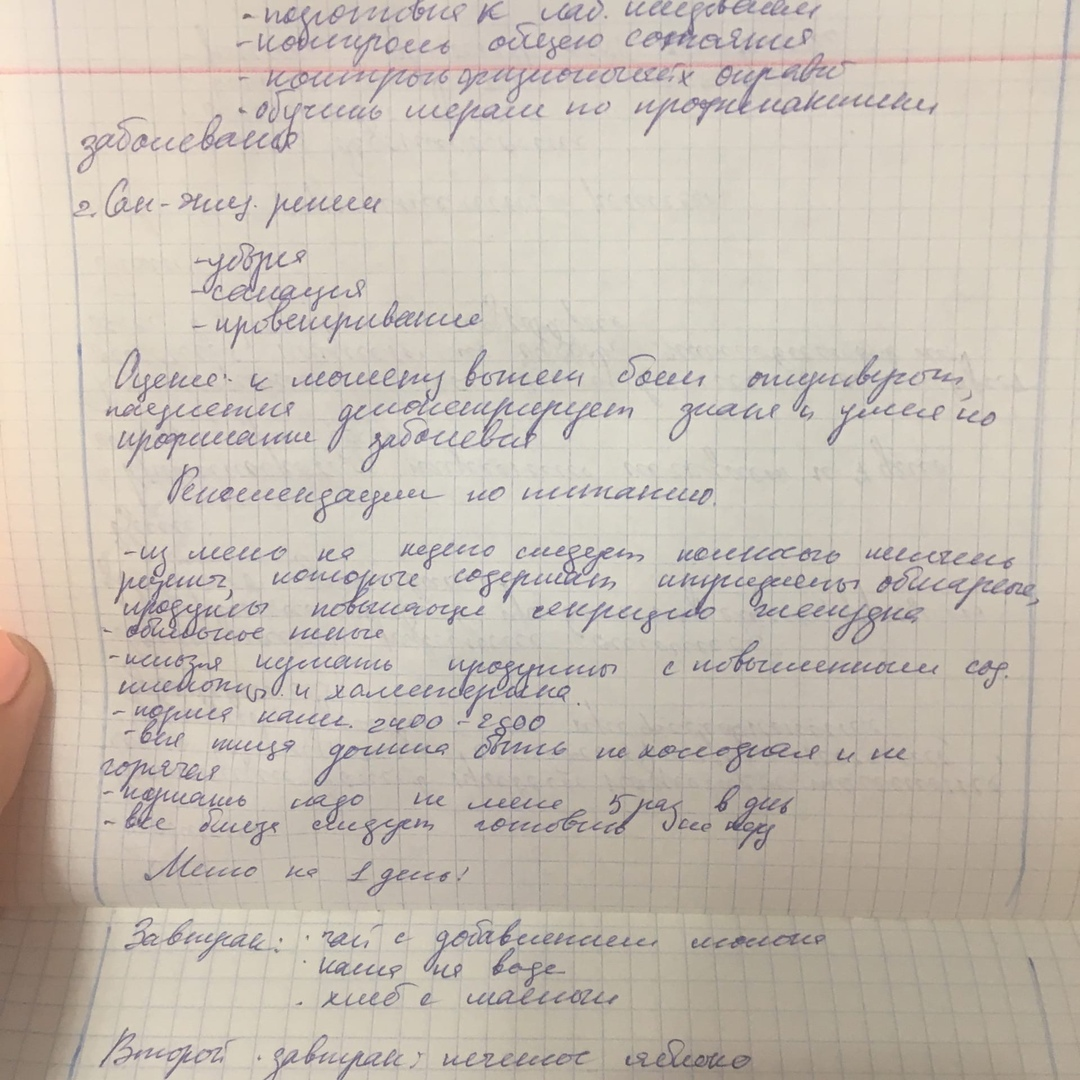 - подготовка к лаб. исследованиям
- контроль общего состояния
- контроль физиологических отправ
- обучить мерам по профилактики
заболевания
2. Сан-гиг. режим
- уборка
- санация
- проветривание
Оценка: к моменту выписки боли отсутвуют,
пациентка демонстрирует знания и умен по
профилактике заболевания
Рекомендации по питанию.
- из меню на неделю следует полностью исключить
рецепты, которые содержат ингридиенты обжареные,
продукты повышающие секрецию желудка
- обильное питье
- нельзя кушать продукты с повышенным сод.
клетчатки и халестерина.
- норма калл. 2400 - 2500
- вся пища должна быть не холодная и не
горячая
- кушать надо не мене 5 раз в день
- все блюда следует готовить на пару
Меню на 1 день:
Завтрак: · чай с добавлением молока
· каша на воде
· хлеб с маслом
Второй завтрак: печеное яблоко